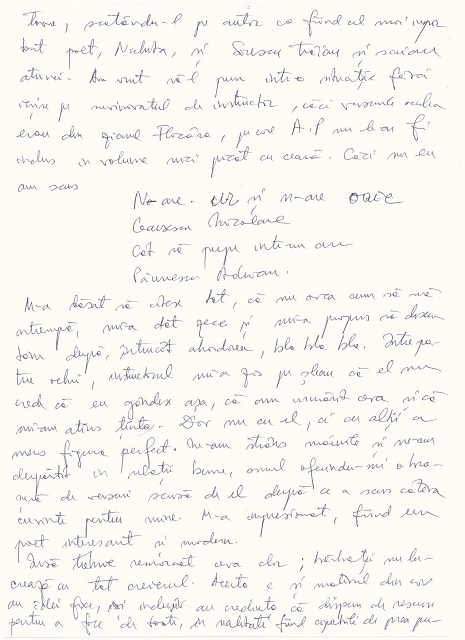 Toma, scotându-l pe autor ca fiind cel mai impor
tant poet, Nichita, și Sorescu Traian și scriam
atunci. Am vrut să-l pun intr-o situație fără
ieșire pe nenorocitul de instructor, căci versurile
erau din Flacăra, pe care A.P nu le-ar fi
inclus in volume nici picat cu ceară. Căci nu eu
am scris
No are. și n-are orice
Ceaușescu Nicolae
Cât să pupe intr-un an
Păunescu Adrian.
M-a lăsat să citesc tot, că nu avea cum să mă
intrerupă, mi-a dat zece și mi-a propus să discu
tăm după, întrucât abordarea, bla bla bla. Intre pa
tru ochi, instructorul mi-a zis pe șleau că el nu
crede că eu gândesc așa, că am urmărit ceva și că
mi-am atins ținta. Dar nu cu el, ci cu alții a
mers figura perfect. Ne-am strâns mâinile și ne-am
despărțit in relații bune, omul oferindu-mi o bro
șură de versuri scrisă de el după ce a scris câteva
cuvinte pentru mine. M-a impresionat, fiind un
poet interesant și modern.
Insă trebuie remarcat ceva clar; bărbații nu lu-
crează cu tot creierul. Acesta e și motivul din care
au idei fixe, au credința că dispun de resurse
pentru a face de toate, in realitate fiind capabili de prea pu-